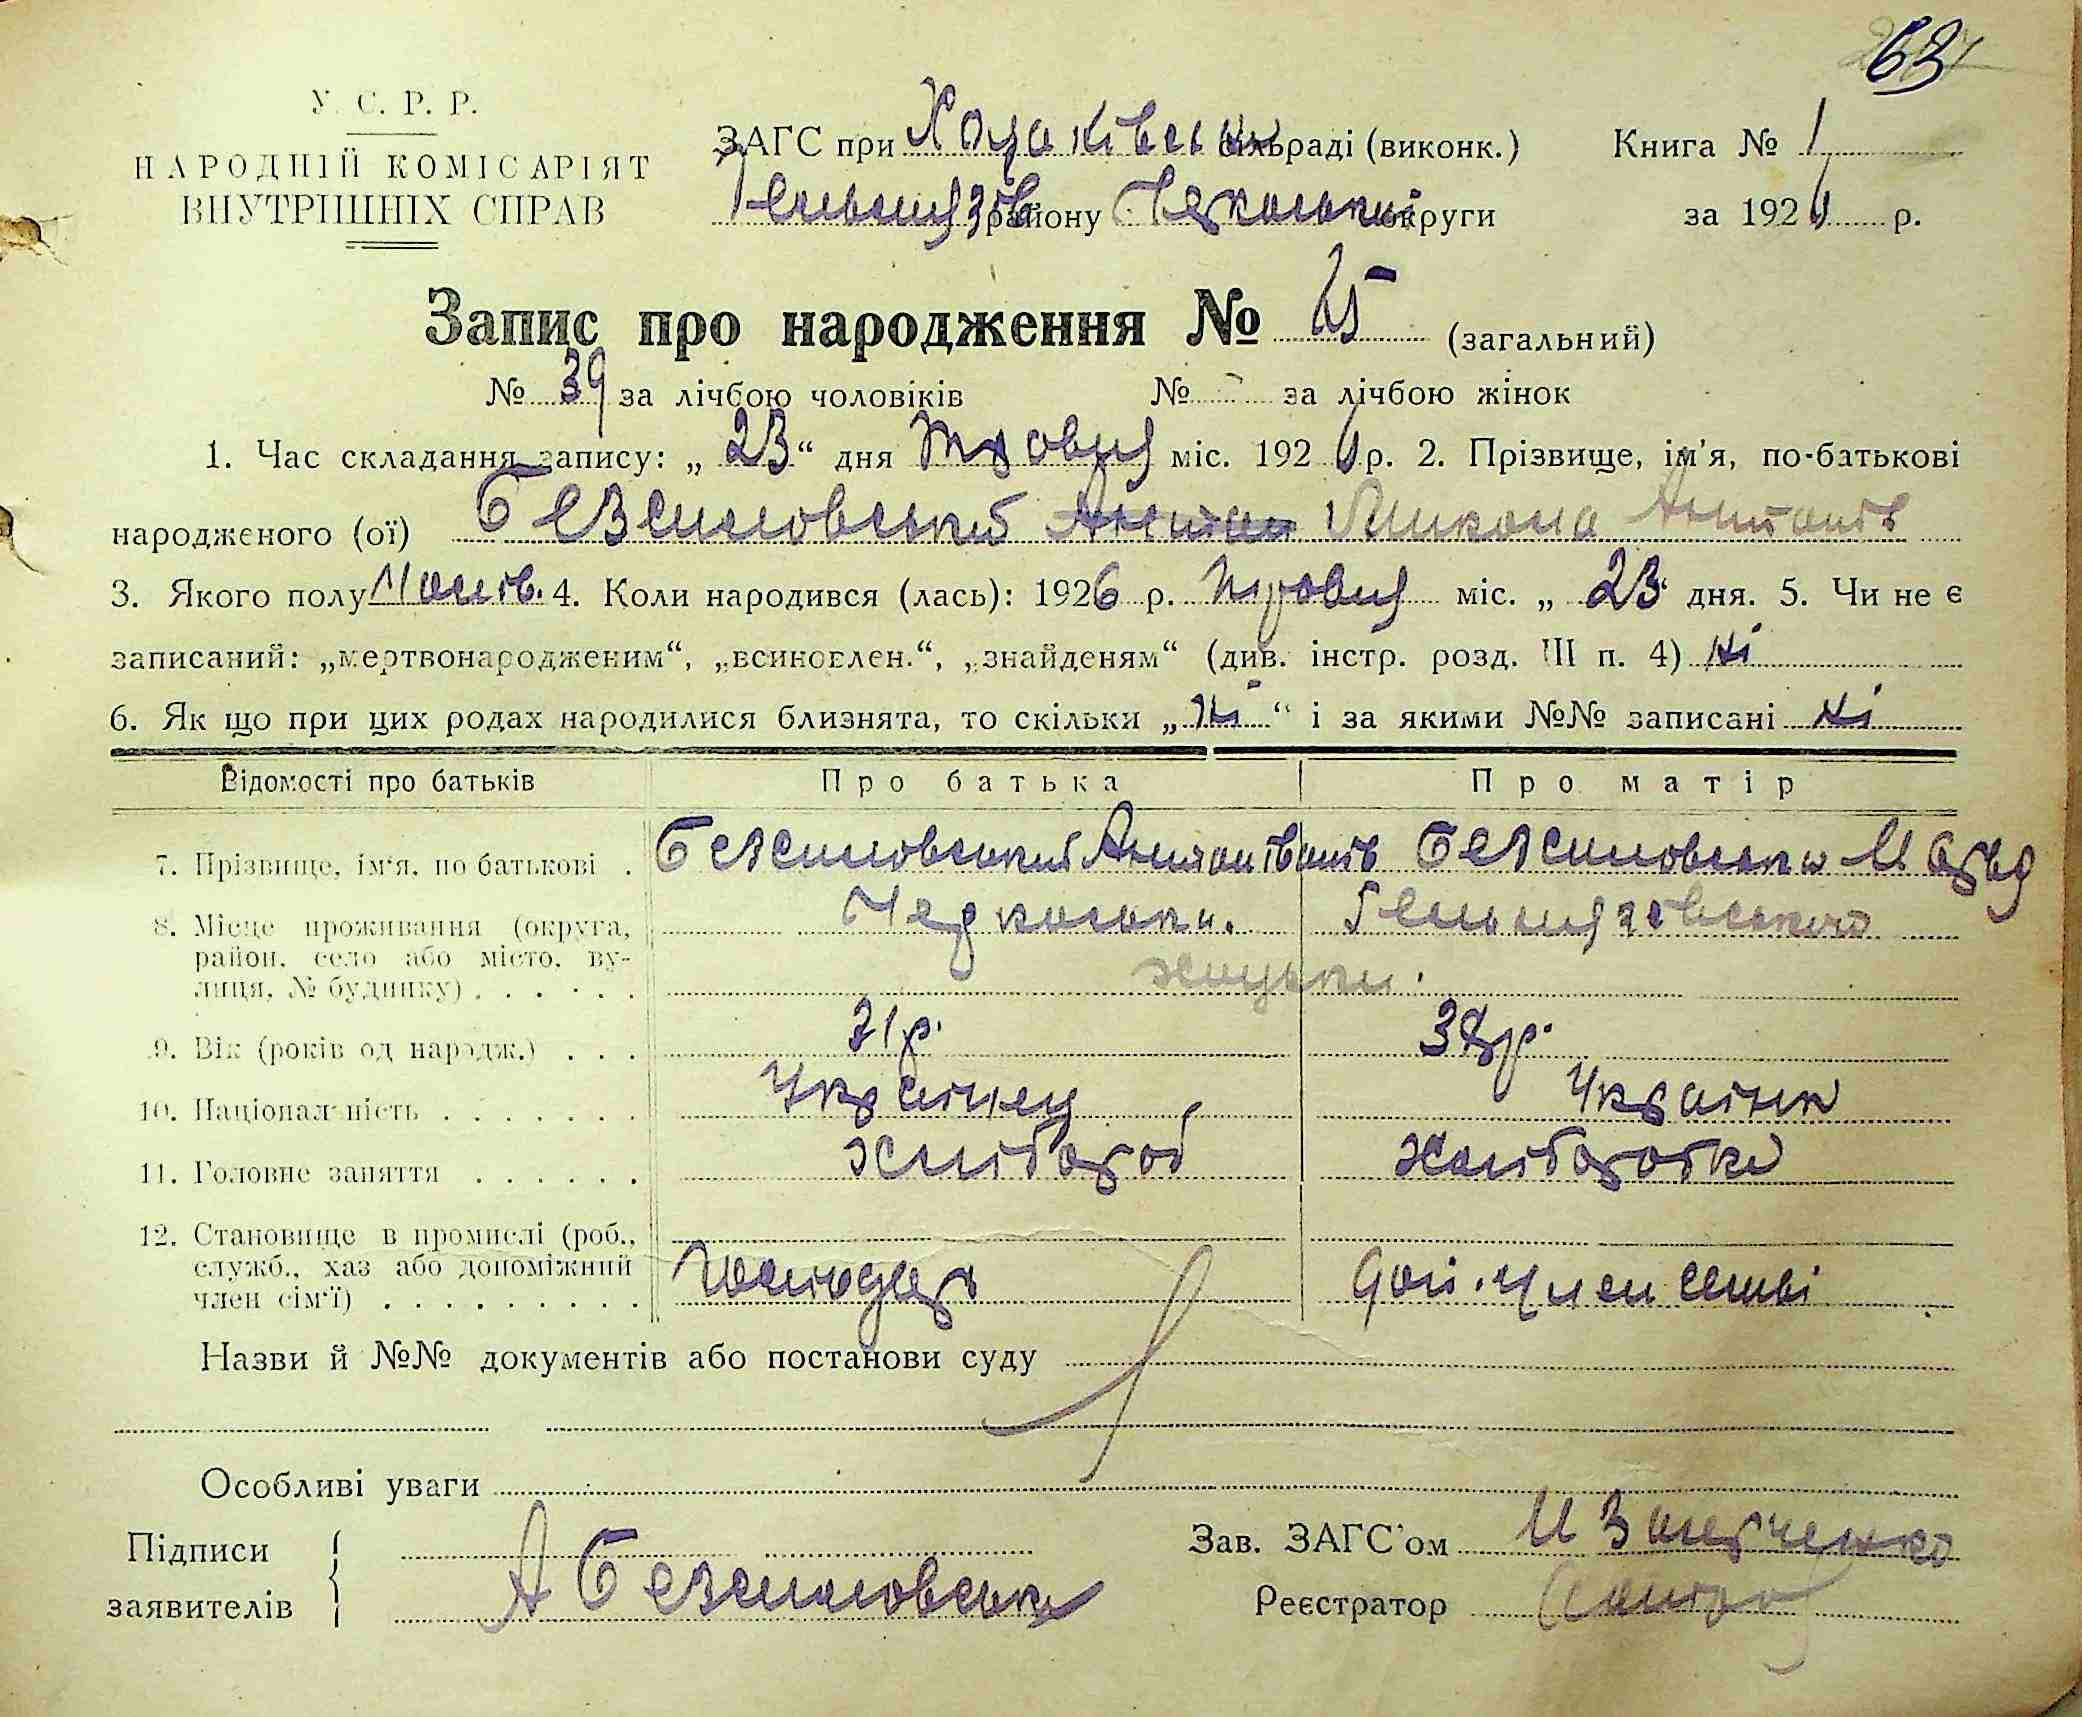 63
У. С. Р. Р.
НАРОДНІЙ КОМІСАРІЯТ
ВНУТРІШНІХ СПРАВ
ЗАГС при сільраді (виконк.)
Книга № 1
району Черкаської округи
за 1926 р.
Запис про народження № (загальний)
№ 39 за лічбою чоловіків № - за лічбою жінок
1. Час складання запису: „ 23 “ дня травня міс. 1926 р. 2. Прізвище, ім'я, по-батькові
народженого (ої) Безсмаловський Антон Микола Антонів
3. Якого полу 4. Коли народився (лась): 1926 р. травня міс. „ 23 “ дня. 5. Чи не є
записаний: „мертвонародженим“, „всиновлен.“, „знайденям“ (див. інстр. розд. III п. 4) ні
6. Як що при цих родах народилися близнята, то скільки „ ні “ і за якими №№ записані ні
Відомості про батьків Про батька Про матір
7. Прізвище, ім'я, по батькові . Антон Іванів
8. Місце проживання (округа, район, село або місто, вулиця, № будинку) . . . . . Черкаськ.
9. Вік (років од народж.) . . . 38 р.
10. Національність . . . . . . . Українец Українк
11. Головне заняття . . . . . . хлібороб хліборобка
12. Становище в промислі (роб., служб., хаз або допоміжний член сім'ї) . . . . . . . . . господар доп. член семві
Назви й №№ документів або постанови суду
Особливі уваги
Підписи
заявителів
Зав. ЗАГС'ом
Реєстратор